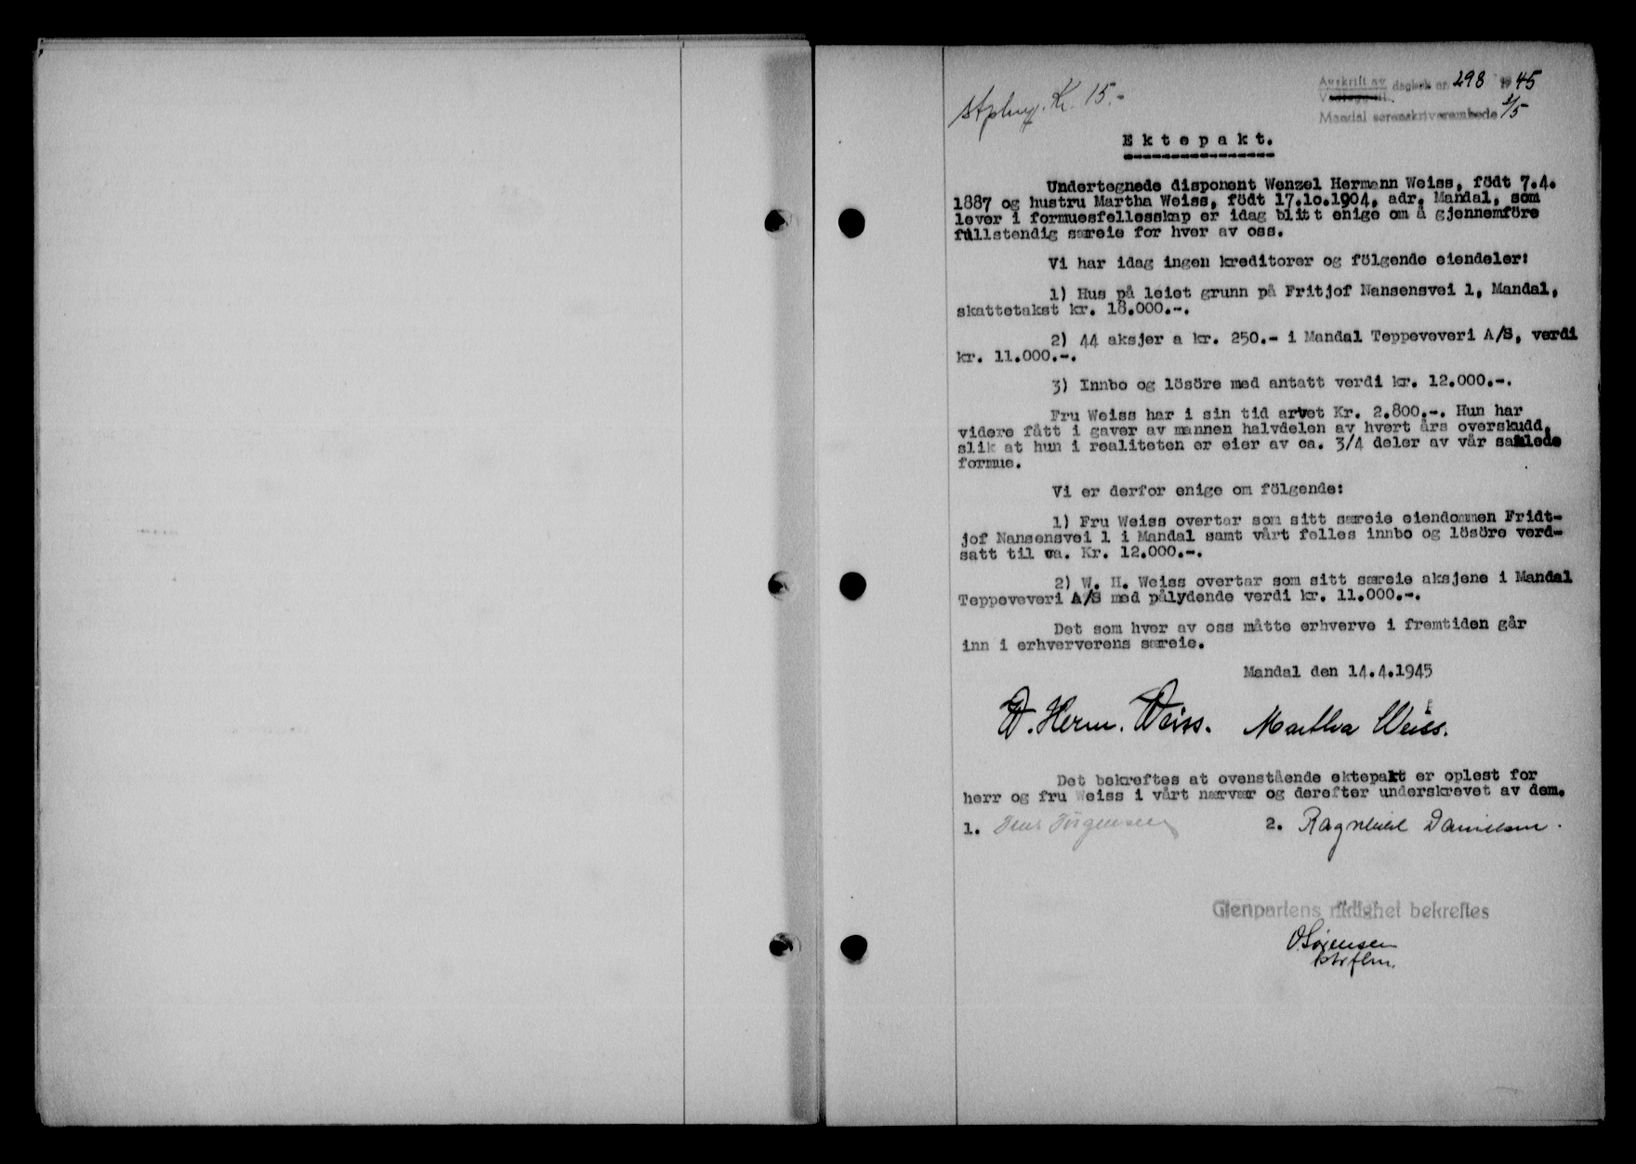 Avskrift av dagbok nr. 298 1945
Mandal sorenskriverembede 2/5
Kr. 15.-
Ektepakt.
Undertegnede disponent Wenzel Hermann Weiss, födt 7.4.
1887 og hustru Martha Weiss, födt 17.10.1904, adr. Mandal, som
lever i formuesfellesskap er idag blitt enige om å gjennemföre
fullstendig særeie for hver av oss.
Vi har idag ingen kreditorer og fölgende eiendeler:
1) Hus på leiet grunn på Fritjof Nansensvei 1, Mandal,
skattetakst kr. 18.000.-.
2) 44 aksjer a kr. 250.- i Mandal Teppeveveri A/S, verdi
kr. 11.000.-.
3) Innbo og lösöre med antatt verdi kr. 12.000.-.
Fru Weiss har i sin tid arvet Kr. 2.800.-. Hun har
videre fått i gaver av mannen halvdelen av hvert års overskudd,
slik at hun i realiteten er eier av ca. 3/4 deler av vår samlede
formue.
Vi er derfor enige om fölgende:
1) Fru Weiss overtar som sitt særeie eiendommen Fridt-
jof Nansensvei 1 i Mandal samt vårt felles innbo og lösöre verd-
satt til ca. Kr. 12.000.-.
2) W. H. Weiss overtar som sitt særeie aksjene i Mandal
Teppeveveri A/S med pålydende verdi kr. 11.000.-.
Det som hver av oss måtte erhverve i fremtiden går
inn i erhververens særeie.
Mandal den 14.4.1945
W. Herm. Weiss. Martha Weiss.
Det bekreftes at ovenstående ektepakt er oplest for
herr og fru Weiss i vårt nærvær og derefter underskrevet av dem.
1. Jens Jörgensen 2. Ragnhild Danielsen.
Gjenpartens riktighet bekreftes
O. Sørensen